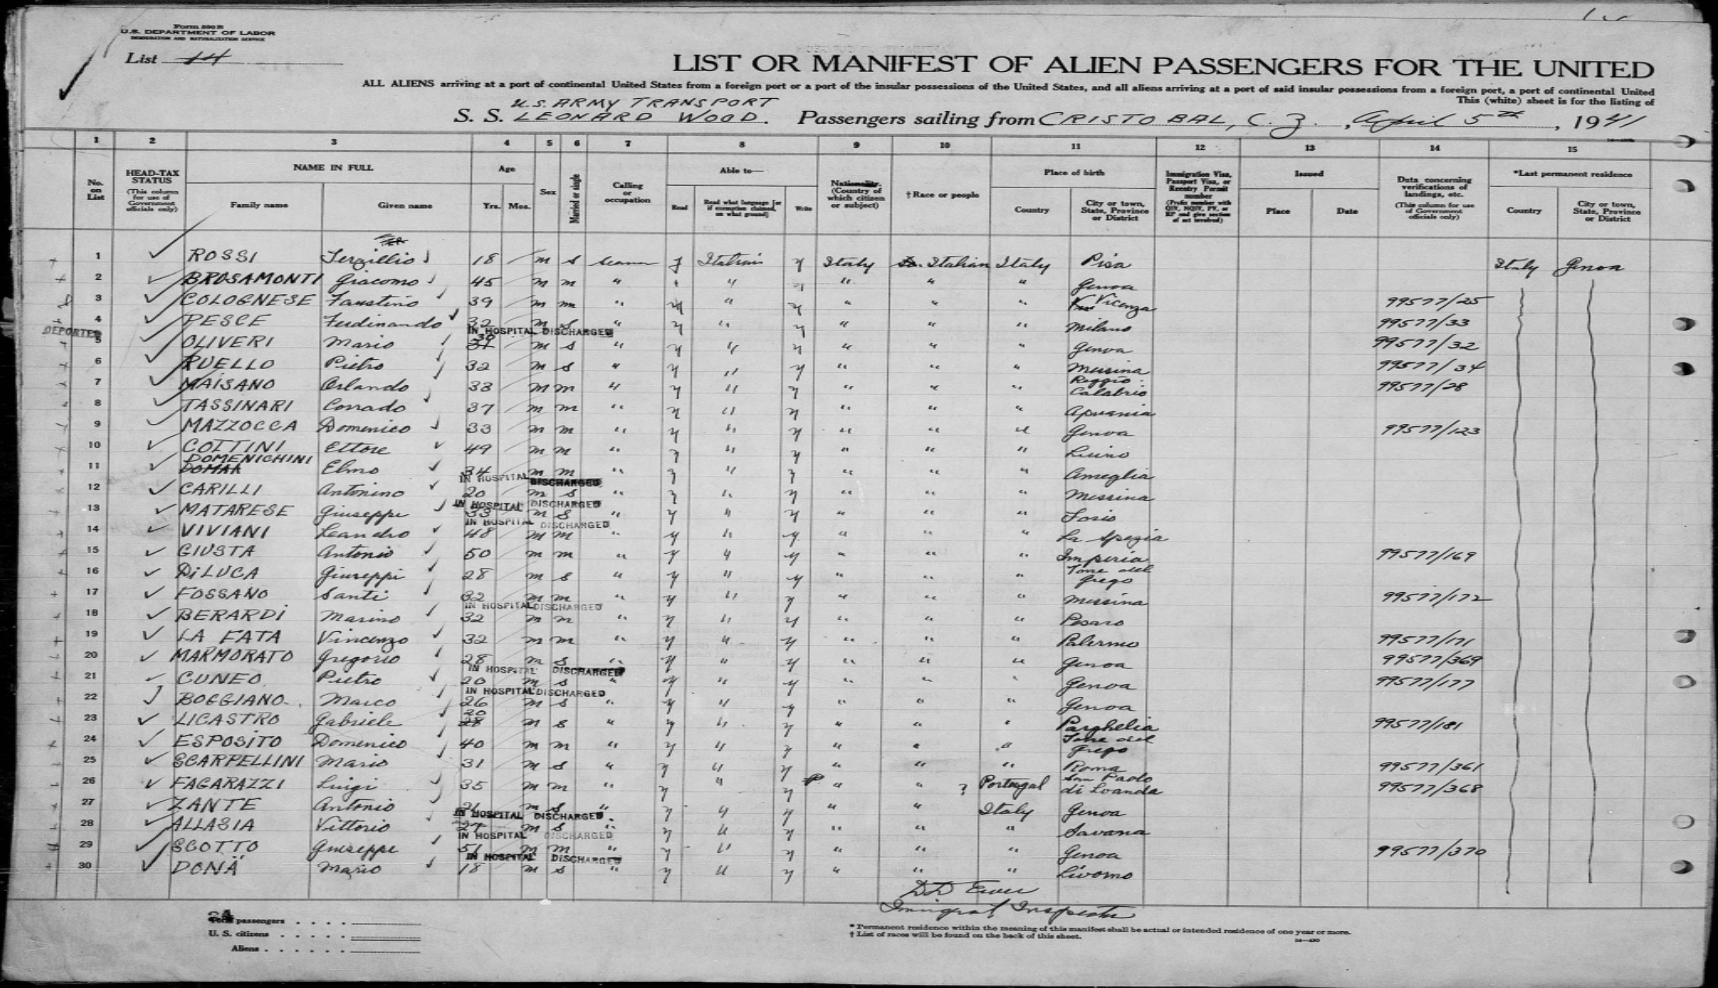 Form 500 B
U.S. DEPARTMENT OF LABOR
IMMIGRATION AND NATURALIZATION SERVICE
List 14
LIST OR MANIFEST OF ALIEN PASSENGERS FOR THE UNITED
ALL ALIENS arriving at a port of continental United States from a foreign port or a port of the insular possessions of the United States, and all aliens arriving at a port of said insular possessions from a foreign port, a port of continental United
This (white) sheet is for the listing of
U.S. ARMY TRANSPORT
S. S. LEONARD WOOD. Passengers sailing from CRISTOBAL, C. Z., April 5th, 1941
1 2 3 4 5 6 7 8 9 10 11 12 13 14 15
No. on List
HEAD-TAX STATUS (This column for use of Government officials only)
NAME IN FULL
Family name Given name
Age
Yrs. Mos.
Sex
Married or single
Calling or occupation
Able to—
Read Read what language [or if exemption claimed, on what ground] Write
Nationality. (Country of which citizen or subject)
† Race or people
Place of birth
Country City or town, State, Province or District
Immigration Visa, Passport Visa, or Reentry Permit number
Issued
Place Date
Data concerning verifications of landings, etc. (This column for use of Government officials only)
*Last permanent residence
Country City or town, State, Province or District
1 ROSSI Terzillio 18 m s seaman y Italian y Italy Italian Italy Pisa Italy Genoa
2 BROSAMONTI Giacomo 45 m m " " y " " " Genoa
3 COLOGNESE Faustino 39 m m " y " y " " " Vicenza 99577/25
4 PESCE Ferdinando 32 m s " y " y " " " Milano 99577/33
DEPORTED IN HOSPITAL DISCHARGED
5 OLIVERI Mario m s " y " y " " " Genoa 99577/32
6 RUELLO Pietro 32 m s " y " y " " " Messina 99577/34
7 MAISANO Orlando 33 m m " y " y " " " Reggio Calabria 99577/28
8 TASSINARI Corrado 37 m m " y " y " " " Apuania
9 MAZZOCCA Domenico 33 m m " y " y " " " Genoa 99577/123
10 COTTINI Ettore 49 m m " y " y " " " Luino
DOMENICHINI
11 Elmo 34 m m " y " y " " " Ameglia
IN HOSPITAL DISCHARGED
12 CARILLI Antonino 20 m s " y " y " " " Messina
IN HOSPITAL DISCHARGED
13 MATARESE Giuseppe 33 m s " y " y " " " Forio
IN HOSPITAL DISCHARGED
14 VIVIANI Leandro 48 m m " y " y " " " La Spezia
15 GIUSTA Antonio 50 m m " y " y " " " Imperia 99577/169
16 DiLUCA Giuseppi 28 m s " y " y " " " Torre del Grego
17 FOSSANO Santi 32 m m " y " y " " " Messina 99577/172
IN HOSPITAL DISCHARGED
18 BERARDI Marino 32 m m " y " y " " " Pesaro
19 LA FATA Vincenzo 32 m m " y " y " " " Palermo 99577/171
20 MARMORATO Gregorio 28 m s " y " y " " " Genoa 99577/369
IN HOSPITAL DISCHARGED
21 CUNEO Pietro 20 m s " y " y " " " Genoa 99577/177
IN HOSPITAL DISCHARGED
22 BOGGIANO Marco 26 m s " y " y " " " Genoa
23 LICASTRO Gabriele 20 m s " y " y " " " Parghelia 99577/181
24 ESPOSITO Domenico 40 m m " y " y " " " Torre del Grego
25 SCARPELLINI Mario 31 m s " y " y " " " Roma 99577/361
26 FAGARAZZI Luigi 35 m m y " y " " Portugal San Paolo di Loanda 99577/368
27 ZANTE Antonio m s " y " y " " Italy Genoa
IN HOSPITAL DISCHARGED
28 ALLASIA Vittorio 27 m s " y " y " " " Savana
IN HOSPITAL DISCHARGED
29 SCOTTO Giuseppe 51 m m " y " y " " " Genoa 99577/370
IN HOSPITAL DISCHARGED
30 DONA Mario 18 m s " y " y " " " Livorno
Immigrant Inspector
passengers
U. S. citizens
Aliens
* Permanent residence within the meaning of this manifest shall be actual or intended residence of one year or more.
† List of races will be found on the back of this sheet.